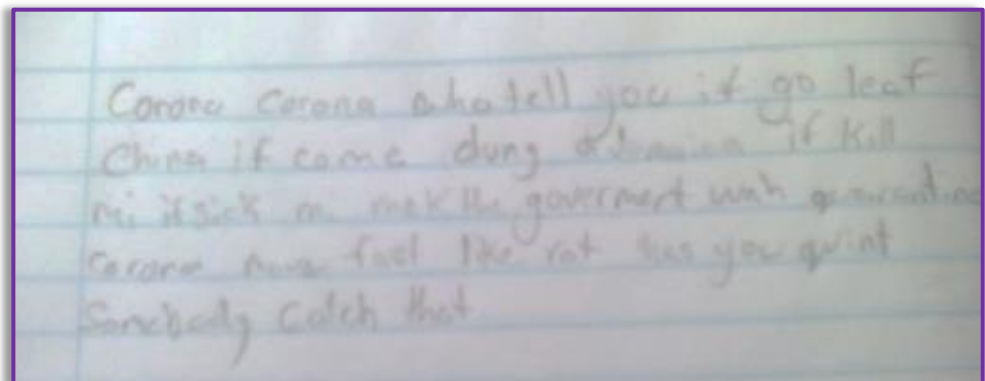 Corona Corona who tell you if go leaf
China if come dung a Jamaica if kill
mi if sick mi mek the goverment wah
Corona have foot like rat has you quint
Somebody catch that